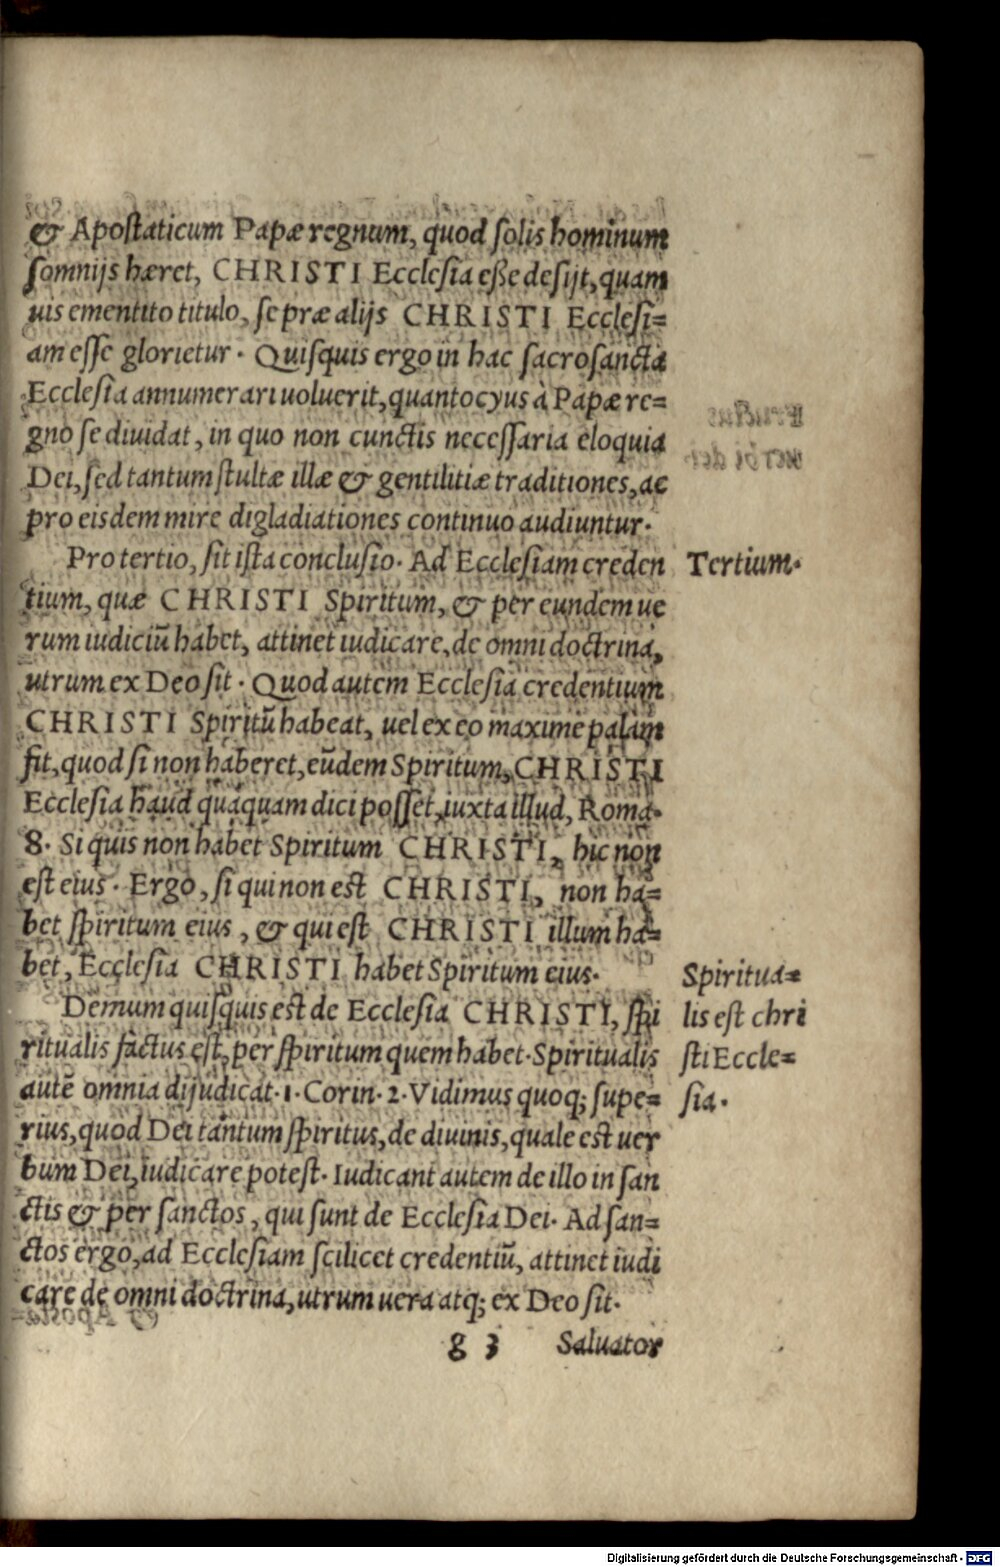 & Apoſtaticum Papæ regnum, quod ſolis hominum
ſomnijs hæret, CHRISTI Eccleſia eße deſijt, quam
uis ementito titulo, ſe præ alijs CHRISTI Eccleſi=
am eſſe glorietur. Quiſquis ergo in hac ſacroſancta
Eccleſia annumerari uoluerit, quantocyus à Papæ re=
gno ſe diuidat, in quo non cunctis neceſſaria eloquia
Dei, ſed tantum ſtultæ illæ & gentilitiæ traditiones, ac
pro eisdem mire digladiationes continuo audiuntur.
Pro tertio, ſit iſta concluſio. Ad Eccleſiam creden
Tertium.
tium, quæ CHRISTI Spiritum, & per eundem ue
rum iudiciū habet, attinet iudicare, de omni doctrina,
utrum ex Deo ſit. Quod autem Eccleſia credentium
CHRISTI Spiritū habeat, uel ex eo maxime palàm
fit, quod ſi non haberet, eūdem Spiritum, CHRISTI
Eccleſia haud quaquam dici poſſet, iuxta illud, Roma.
8. Si quis non habet Spiritum CHRISTI, hic non
eſt eius. Ergo, ſi qui non eſt CHRISTI, non ha=
bet ſpiritum eius, & qui eſt CHRISTI illum ha=
bet, Eccleſia CHRISTI habet Spiritum eius.
Demum quiſquis eſt de Eccleſia CHRISTI, ſpi
ritualis factus eſt, per ſpiritum quem habet. Spiritualis
autē omnia dijudicat. 1. Corin. 2. Vidimus quoq; ſupe=
rius, quod Dei tantum ſpiritus, de diuinis, quale est uer
bum Dei, iudicare poteſt. Iudicant autem de illo in ſan
ctis & per ſanctos, qui ſunt de Eccleſia Dei. Ad ſan=
ctos ergo, ad Eccleſiam ſcilicet credentiū, attinet iudi
care de omni doctrina, utrum uera atq; ex Deo ſit.
Spiritua=
lis eſt chri
ſti Eccle=
ſia.
g 3 Saluator
Digitalisierung gefördert durch die Deutsche Forschungsgemeinschaft - DFG